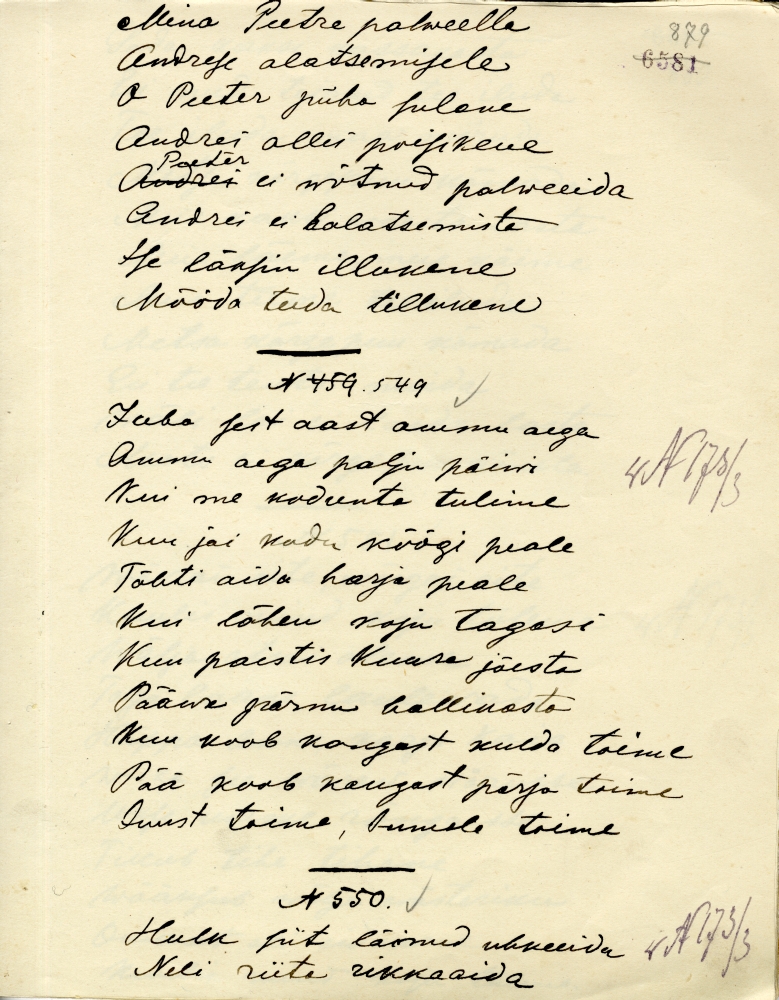 879
6581
Mina Peetre palweella
Andrese alatsemisele
O Peeter püha sulane
Andrei allis poisikene
Peeter
Andrei ei wõtnud palweeida
Andrei ei halatsemista
Ise läksin illukene
Mööda teida tillukene
N 459. 549
Juba sest aast ammu aega
Ammu aega palju päiwi
Kui me kodunta tulime
Kuu jäi kodu köögi peale
Tähti aida harja peale
Kui lähen koju tagasi
Kuu paistis Kuura jõesta
Pääwa pärnu hallikasta
Kuu koob kangast kulda toime
Pää koob kangast pärja toime
Suust toime, sumele toime
N 550.
Hulk siit läinud uhkeeida
Neli riita rikkaaida
N 178/3
N 173/3